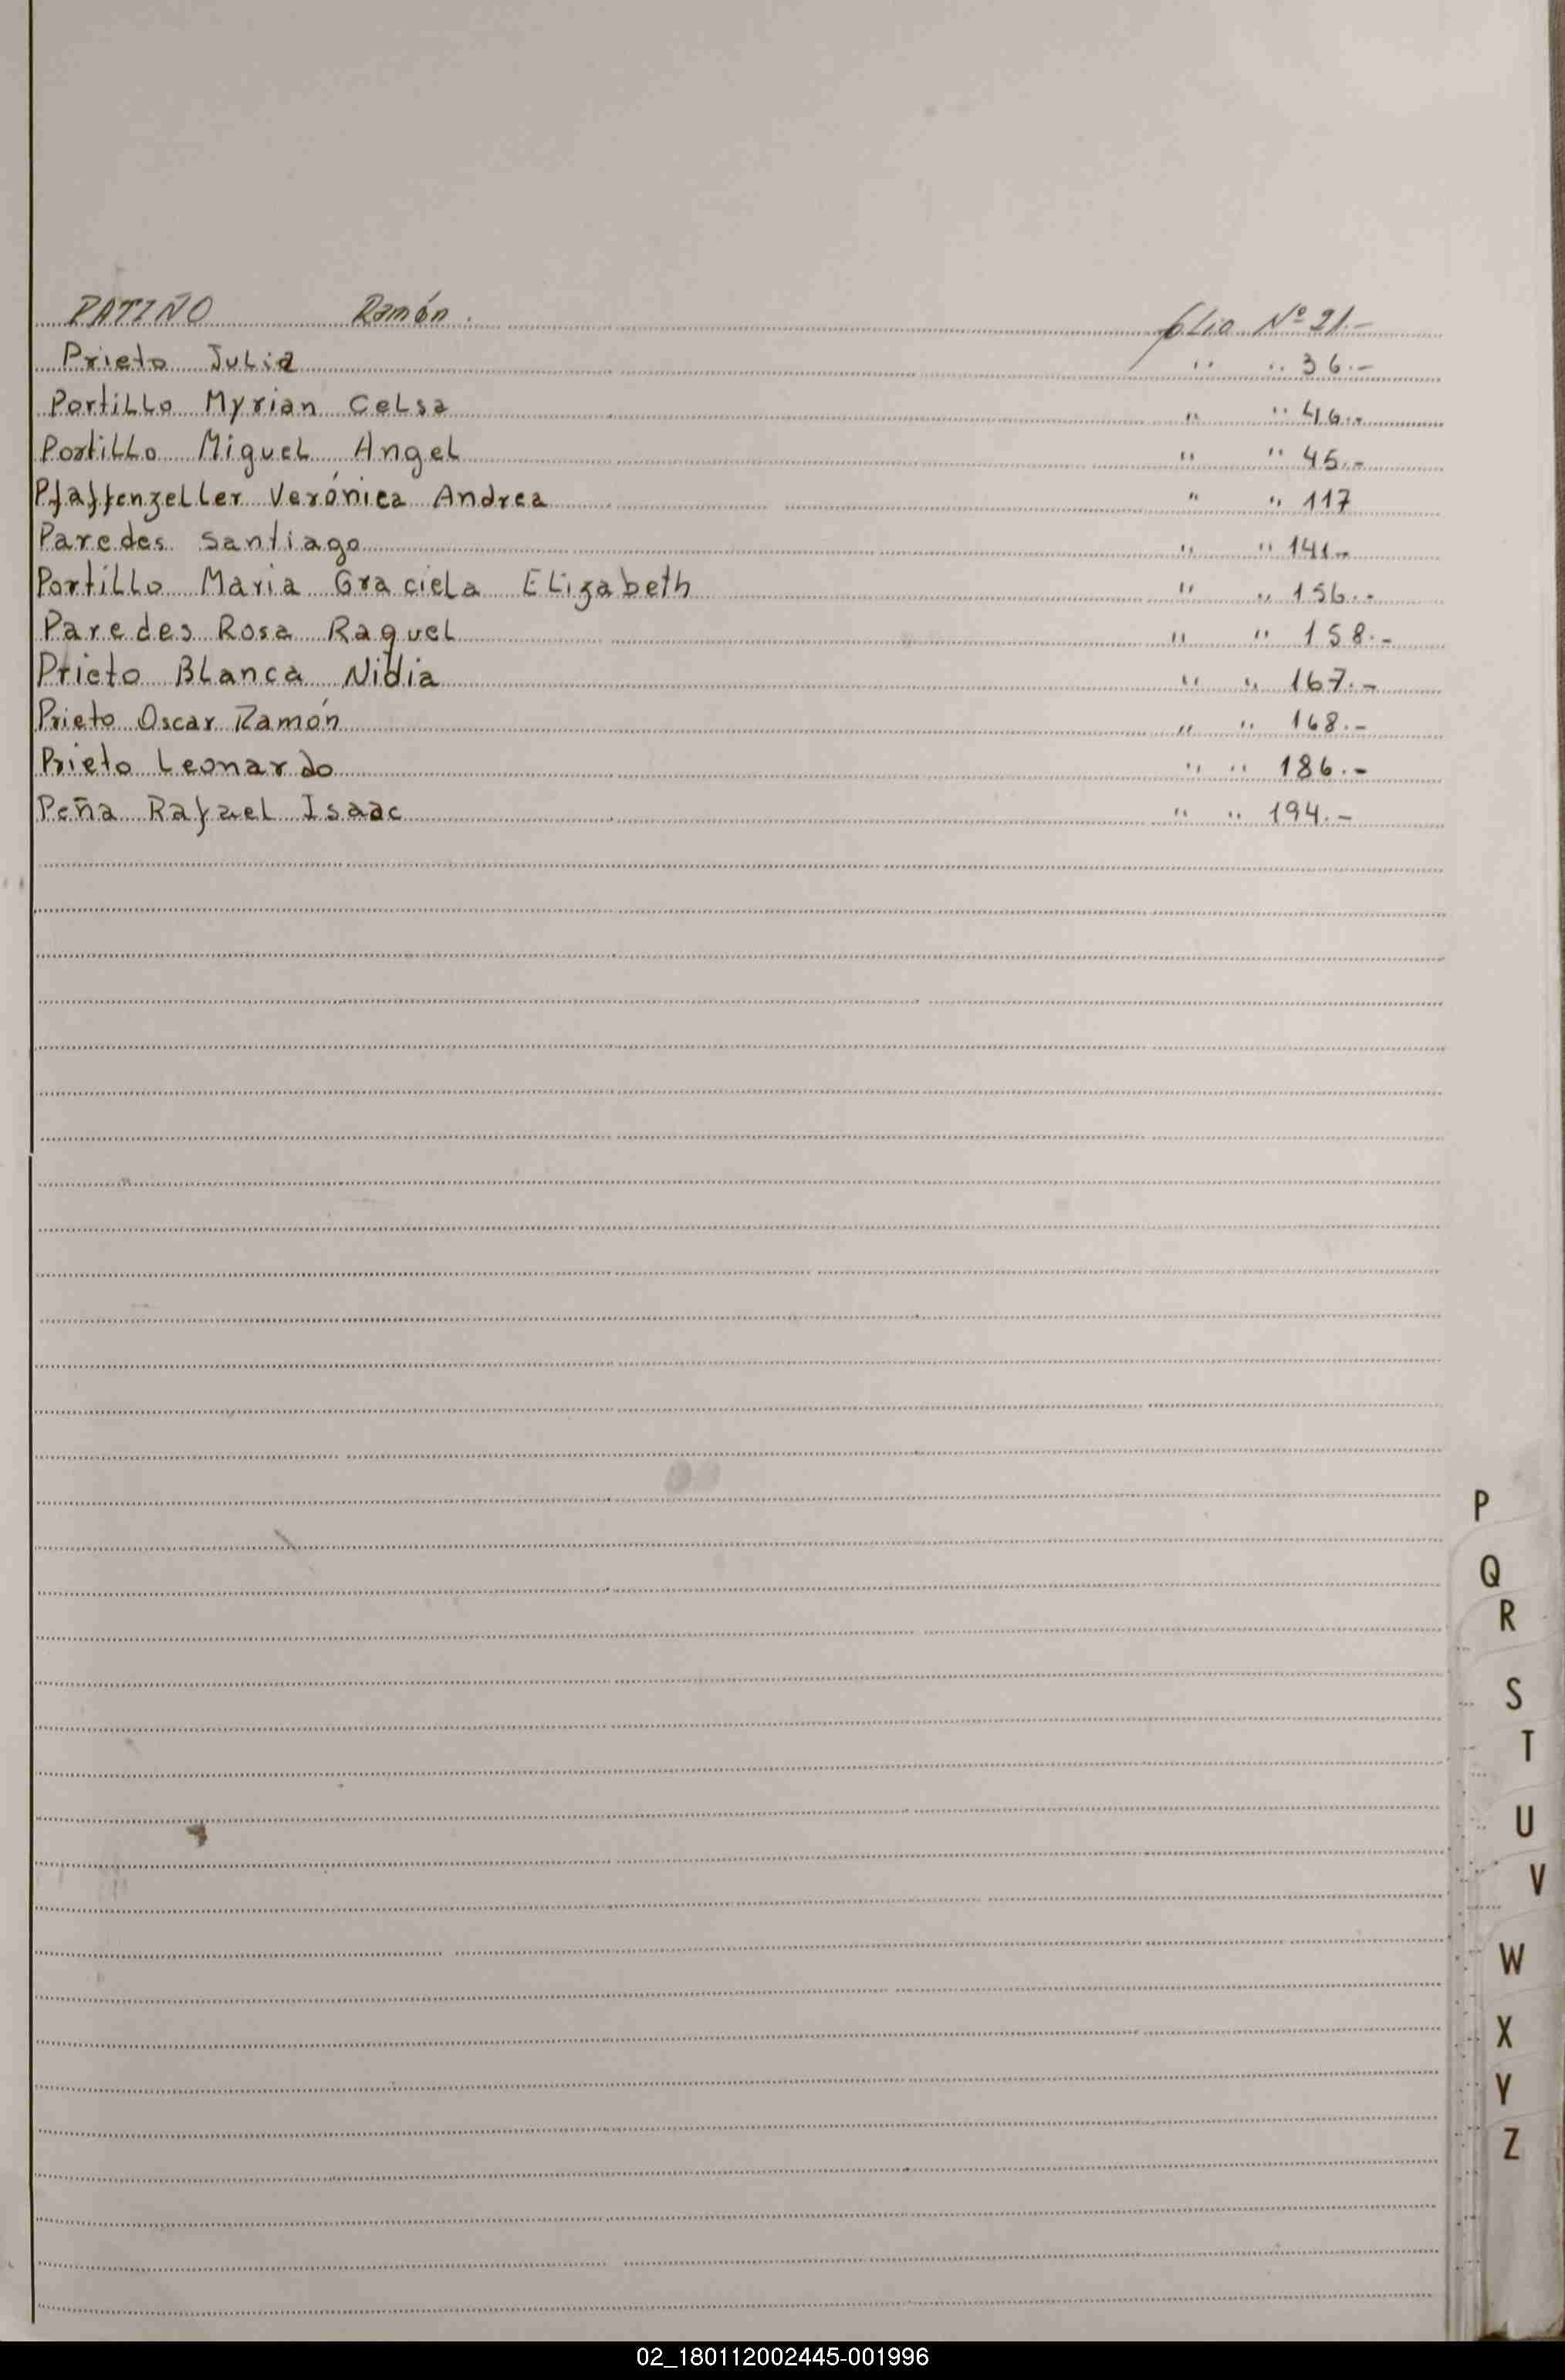 PATIÑO Ramón. folio Nº 21.-
Prieto Julia " " 36.-
Portillo Myrian Celsa " " 46.-
Portillo Miguel Angel " " 45.-
Pfaffenzeller Verónica Andrea " " 117
Paredes Santiago " " 141.-
Portillo Maria Graciela Elizabeth " " 156.-
Paredes Rosa Raquel " " 158.-
Prieto Blanca Nidia " " 167.-
Prieto Oscar Ramón " " 168.-
Prieto Leonardo " " 186.-
Peña Rafael Isaac " " 194.-
P
Q
R
S
T
U
V
W
X
Y
Z
02_180112002445-001996